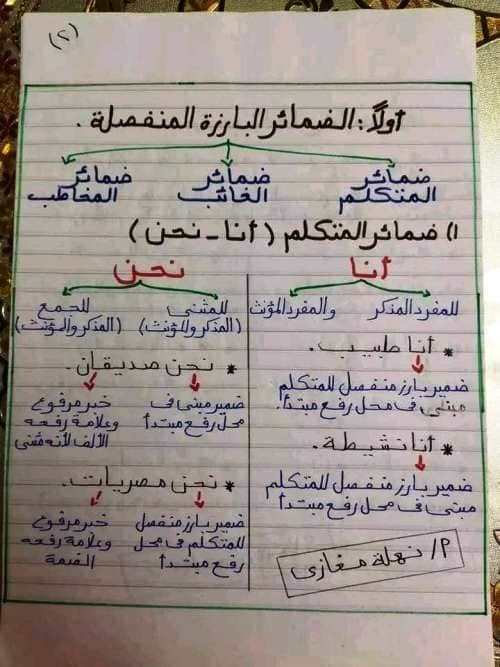 (٢)
أولاً: الضمائر البارزة المنفصلة.
ضمائر المتكلم
ضمائر الغائب
ضمائر المخاطب
١) ضمائر المتكلم (أنا - نحن)
أنا
للمفرد المذكر والمفرد المؤنث
* أنا طبيب.
ضمير بارز منفصل للمتكلم
مبنى فى محل رفع مبتدأ.
* أنا نشيطة.
ضمير بارز منفصل للمتكلم
مبنى فى محل رفع مبتدأ
م/ نهلة مغازى
نحن
للمثنى
(المذكر والمؤنث)
للجمع
(المذكر والمؤنث)
* نحن صديقان.
ضمير مبنى فى
محل رفع مبتدأ
خبر مرفوع
وعلامة رفعه
الألف لأنه مثنى
* نحن مصريات.
ضمير بارز منفصل
للمتكلم فى محل
رفع مبتدأ
خبر مرفوع
وعلامة رفعه
الضمة